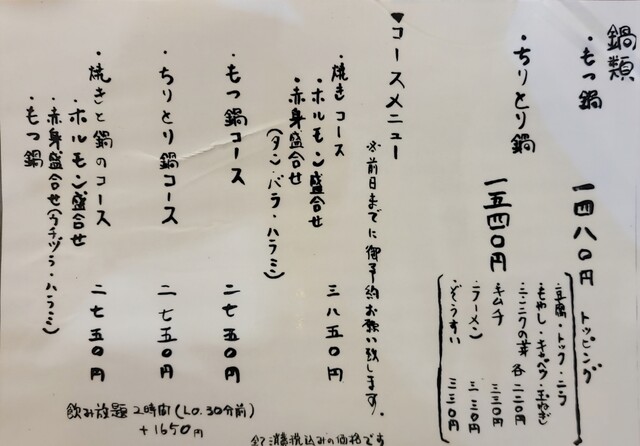 鍋類
・もつ鍋 一四八〇円
・ちりとり鍋 一五四〇円
トッピング
・豆腐・トック・ニラ
・もやし・キャベツ・玉ねぎ
・ニンニクの芽 各 二二〇円
・キムチ 三三〇円
・ラーメン 三三〇円
・ぞうすい 三三〇円
▼コースメニュー
※前日までに御予約お願い致します。
・焼きコース 三八五〇円
・ホルモン盛合せ
・赤身盛合せ
(タン・バラ・ハラミ)
・もつ鍋コース 二七五〇円
・ちりとり鍋コース 二七五〇円
・焼きと鍋のコース 二七五〇円
・ホルモン盛合せ
・赤身盛合せ(ウチヅラ・ハラミ)
・もつ鍋
飲み放題 2時間(L.O.30分前)
+1650円
全て消費税込みの価格です